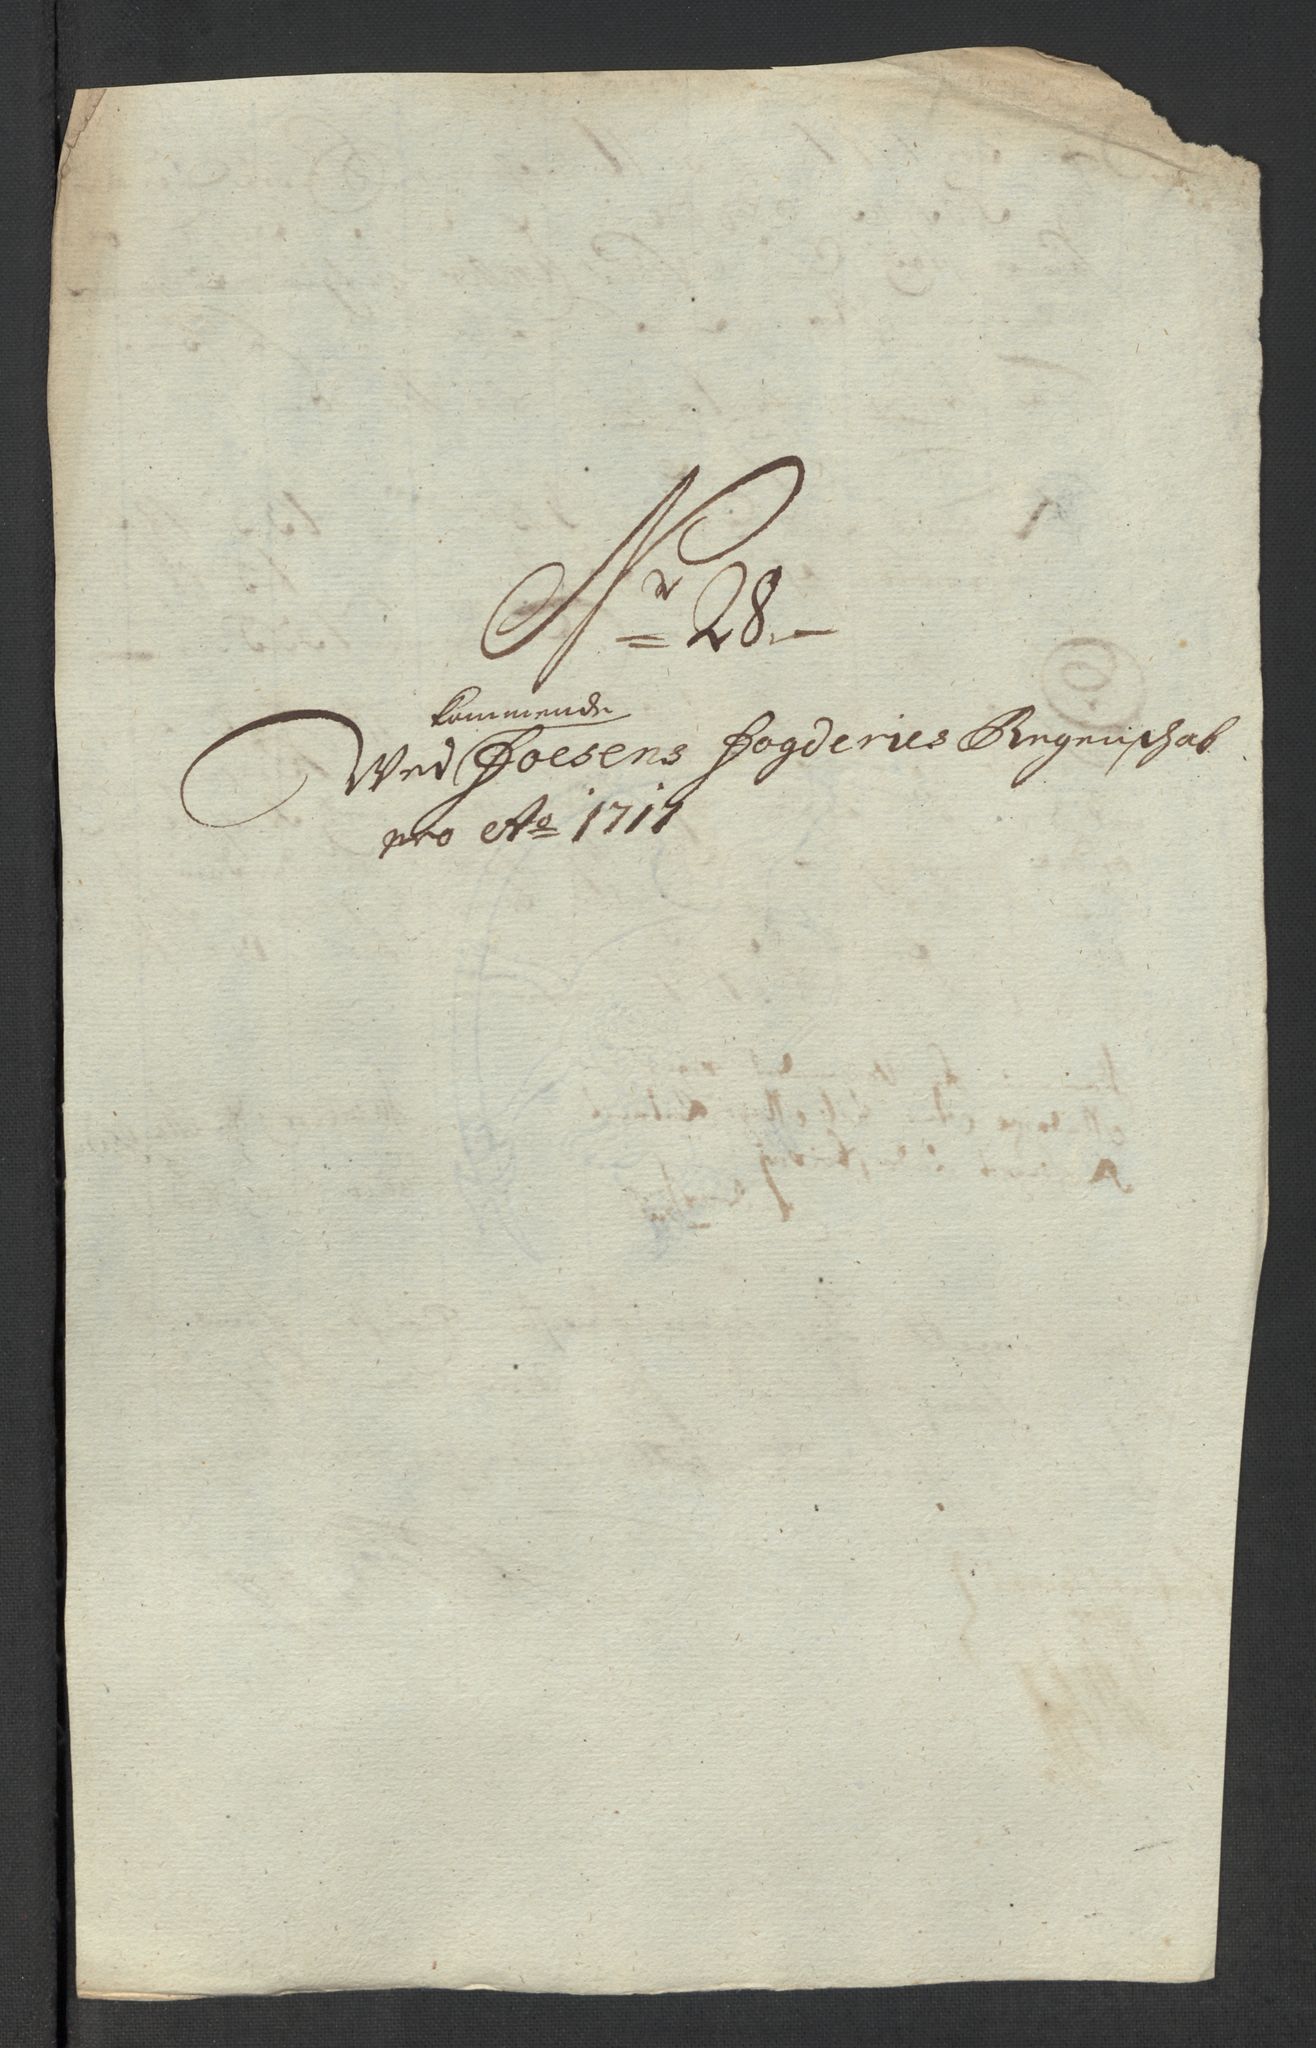 Nr 28.
kommende
Wed Foesens Fogderies Regenschab
pro Ao 1717